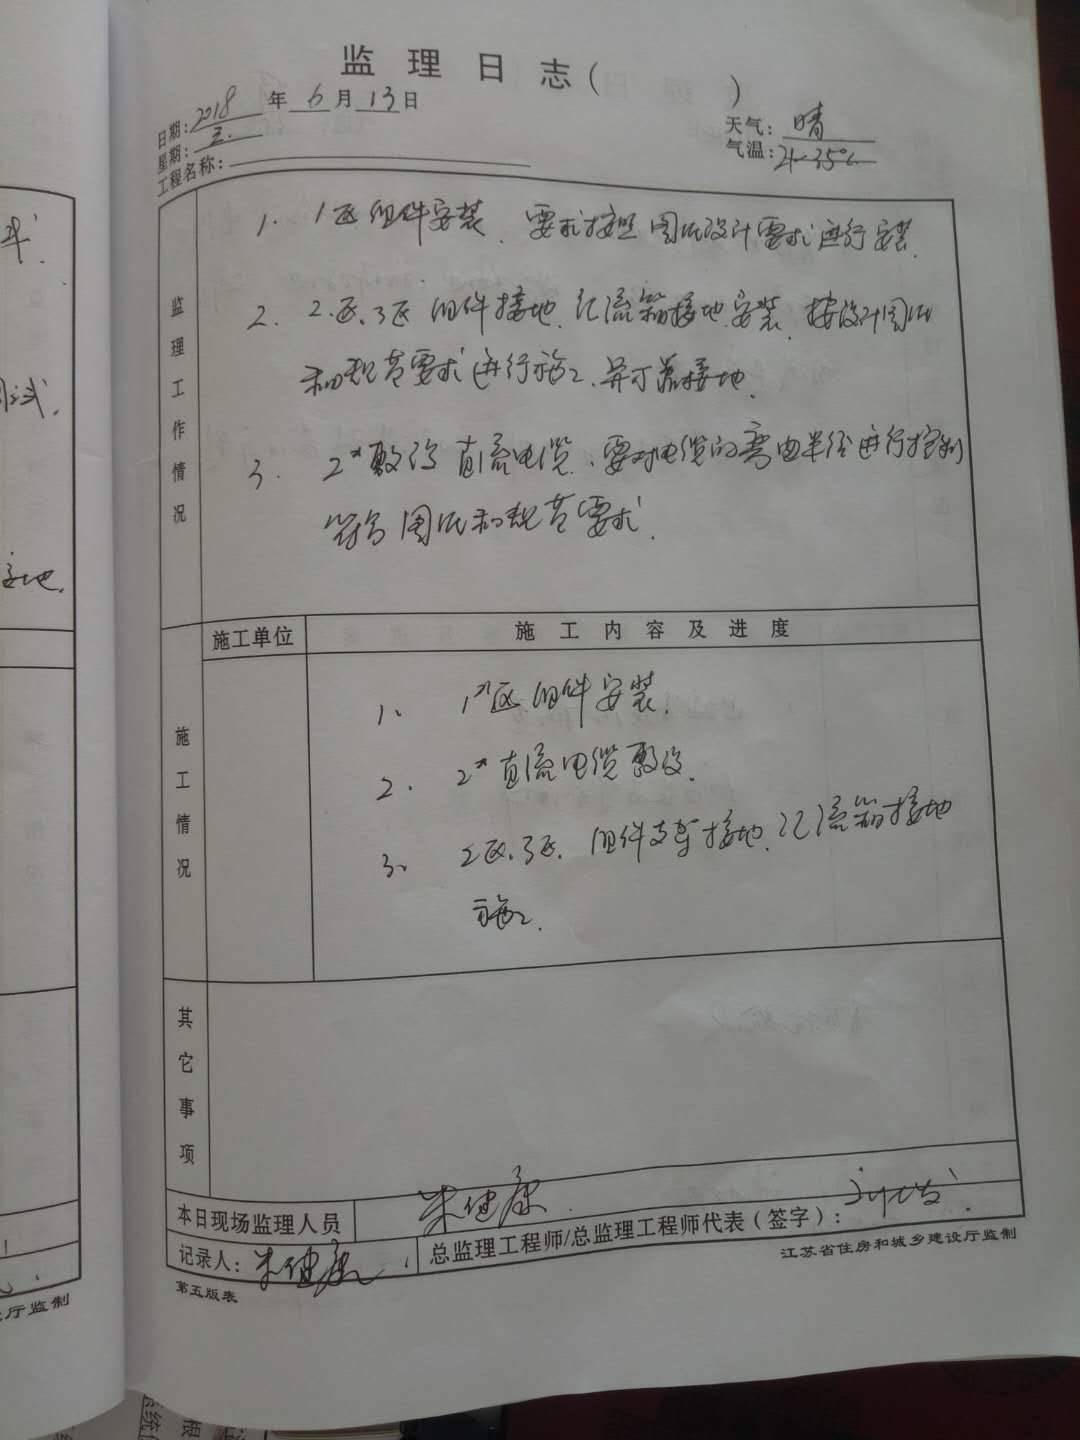 监理日志( )
日期:2018年6月13日
星期:三.
天气:晴
气温:21~35℃
工程名称:
监理工作情况
1. 1区组件安装、要求按照图纸设计要求进行安装.
2. 2区、3区组件接地、汇流箱接地安装、按设计图纸
和规范要求进行施工、并可靠接地.
3. 2#敷设直流电缆、要对电缆的弯曲半径进行控制
符合图纸和规范要求.
施工单位
施工内容及进度
施工情况
1、1#区组件安装.
2、2#直流电缆敷设.
3、2区、3区、组件支架接地、汇流箱接地
施工.
其它事项
本日现场监理人员 朱健康
记录人:朱健康
总监理工程师/总监理工程师代表(签字):
第五版表
江苏省住房和城乡建设厅监制
试.
接地.
厅监制